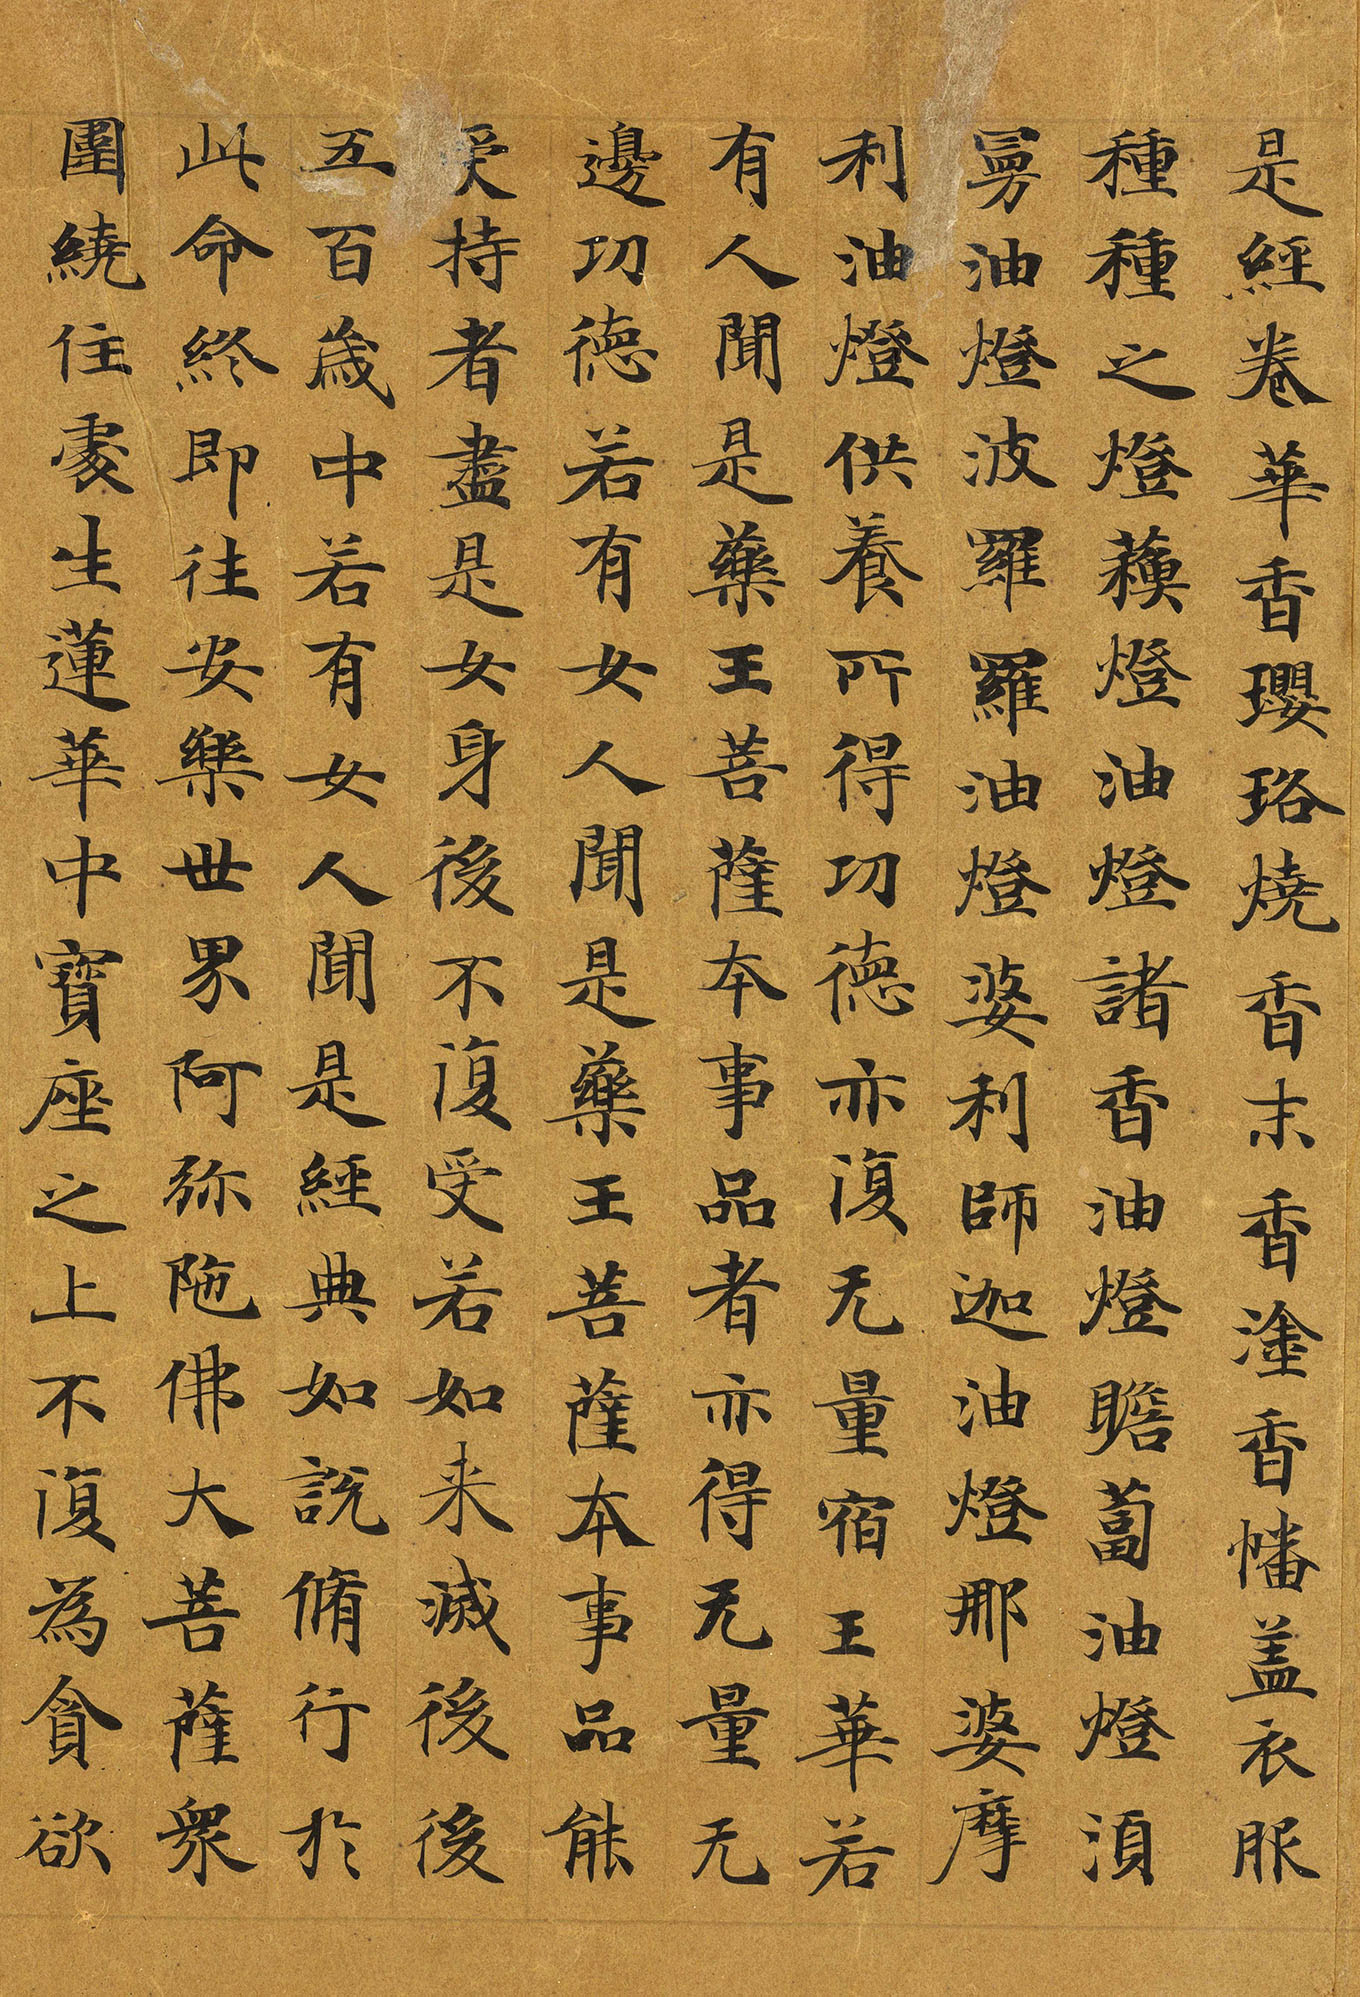 是經卷華香瓔珞燒香末香塗香幡盖衣服
種種之燈蘓燈油燈諸香油燈瞻蔔油燈湏
曼油燈波羅羅油燈婆利師迦油燈那婆摩
利油燈供養所得功德亦復无量宿王華若
有人聞是藥王菩薩本事品者亦得无量无
邊功德若有女人聞是藥王菩薩本事品能
受持者盡是女身後不復受若如来滅後後
五百歲中若有女人聞是經典如說脩行於
此命終即往安樂世界阿弥陁佛大菩薩衆
圍繞住處生蓮華中寶座之上不復為貪欲